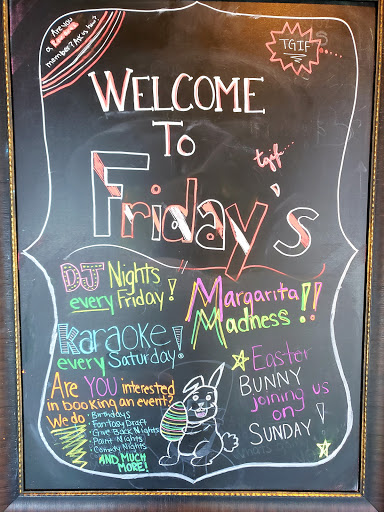 Are you
a Rewards
member? Ask us how?
TGIF
WELCOME
TO
tgif
Friday's
DJ Nights
every Friday!
Margarita
Madness!!
Karaoke
every Saturday!
Easter
BUNNY
joining us
on
SUNDAY!
Are YOU interested
in booking an event?
We do
· Birthdays
· Fantasy Draft
· Give Back Nights
· Paint Nights
· Comedy Nights
AND MUCH
MORE!